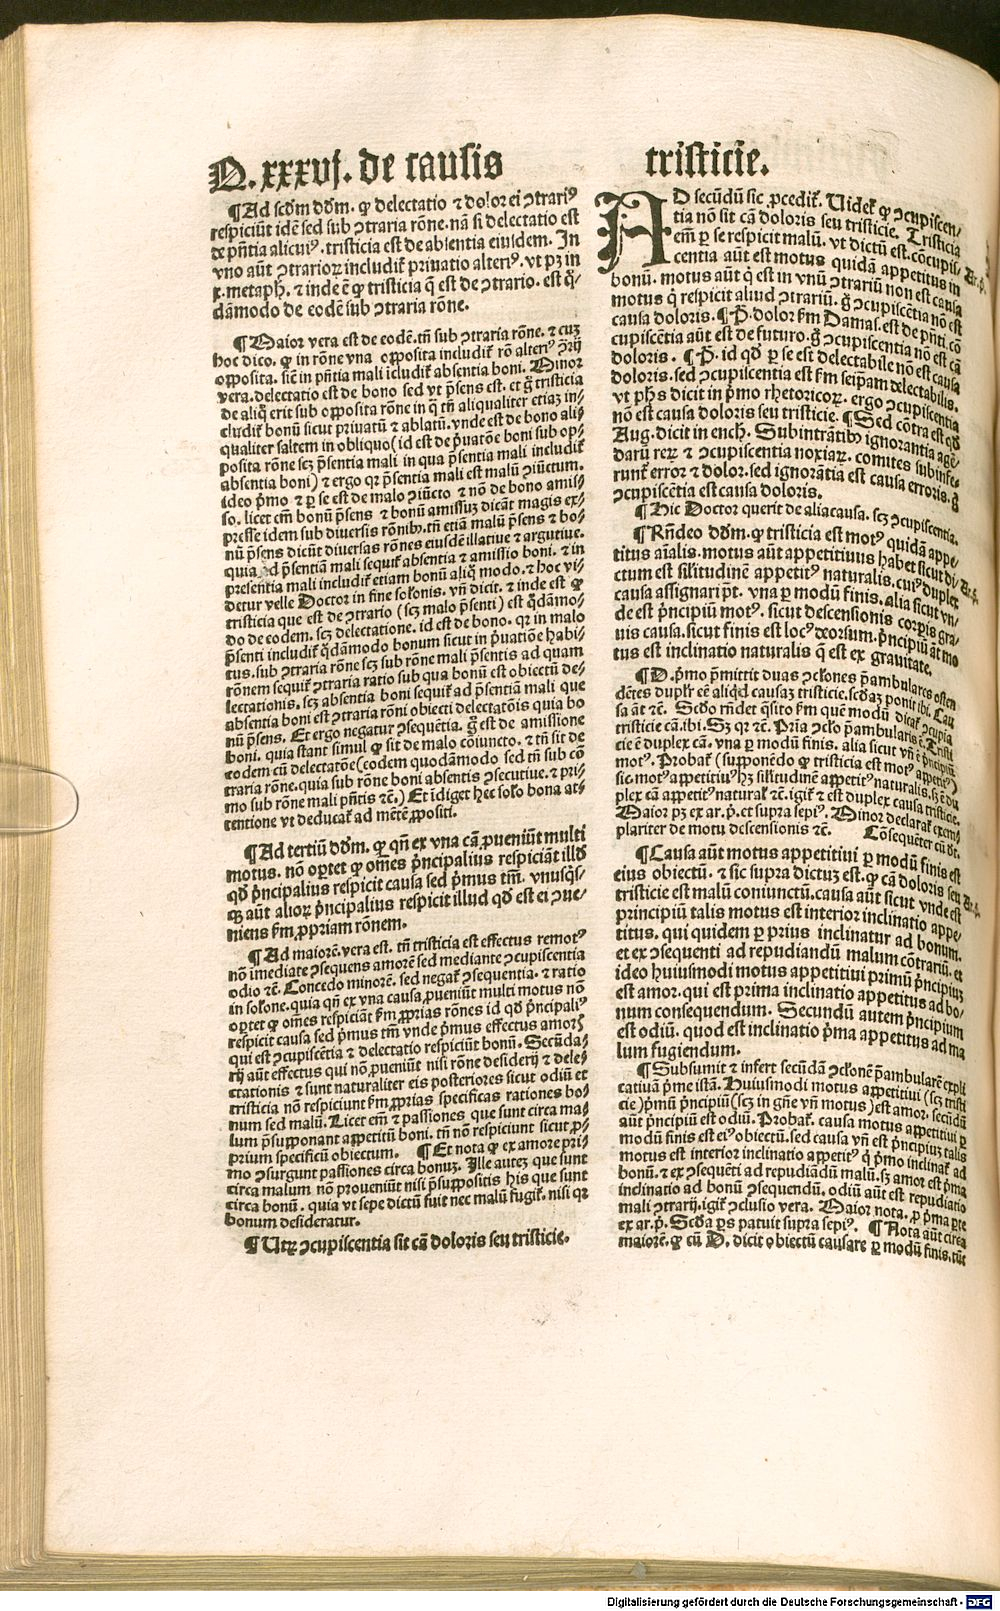 Q. xxxvj. de causis tristicie.
¶Ad scḋm dḋm. ꝙ delectatio ⁊ dolor ei ↄtrariꝰ
respiciūt idē sed sub ↄtraria rōne. nā si delectatio est
de pn̄tia alicuiꝰ. tristicia est de absentia eiusdem. In
vno aūt ↄtrarioꝝ includiť priuatio alteriꝰ. vt pꝫ in
x. metaph. ⁊ inde ē ꝙ tristicia q̄ est de ↄtrario. est q̇̄
dāmodo de eodē sub ↄtraria rōne.
¶Maior vera est de eodē. tn̄ sub ↄtraria rōne. ⁊ cuꝫ
hoc dico. ꝙ in rōne vna opposita includiť rō alteriꝰ ↄ̄rij
opposita. sicut in pn̄tia mali īcludiť absentia boni. Minor
vera. delectatio est de bono sed vt p̄sens est. et ḡ tristicia
de aliq̇ erit sub opposita rōne in q̇ tn̄ aliqualiter etiaꝫ in⸗
cludiť bonū sicut priuatū ⁊ ablatū. vnde est de bono ali⸗
qualiter saltem in obliquo (id est de p̄uatōe boni sub op⸗
posita rōne scꝫ p̄sentia mali in qua p̄sentia mali includiť
absentia boni) ⁊ ergo qꝛ p̄sentia mali est malū ↄiūctum.
ideo p̄mo ⁊ ꝑ se est de malo ↄiūcto ⁊ nō de bono amis⸗
so. licet em̄ bonū p̄sens ⁊ bonū amissuꝫ dicāt magis ex⸗
presse idem sub diuersis rōnibꝰ. tn̄ etiā malū p̄sens ⁊ bo⸗
nū p̄sens dicūt diuersas rōnes eiusdē illatiue ⁊ argutiue.
quia ad p̄sentiā mali sequiť absentia ⁊ amissio boni. ⁊ in
presentia mali includiť etiam bonū aliq̇ modo. ⁊ hoc vi⸗
detur velle Doctor in fine solonis. vn̄ dicit. ⁊ inde est ꝙ
tristicia que est de ↄtrario (scꝫ malo p̄senti) est q̇dāmo⸗
do de eodem. scꝫ delectatione. id est de bono. qꝛ in malo
p̄senti includiť q̇dāmodo bonum sicut in p̄uatiōe habi⸗
tus. sub ↄtraria rōne scꝫ sub rōne mali p̄sentis ad quam
rōnem sequiť ↄtraria ratio sub qua bonū est obiectū de⸗
lectationis. scꝫ absentia boni sequiť ad p̄sentiā mali que
absentia boni est ↄtraria rōni obiecti delectatōis quia bo
nū p̄sens. Et ergo negatur ↄsequētia. ḡ est de amissione
boni. quia stant simul ꝙ sit de malo coiuncto. ⁊ tn̄ sit de
eodem cū delectatōe (eodem quodāmodo sed tn̄ sub cō
traria rōne. quia sub rōne boni absentis ↄsecutiue. ⁊ pri⸗
mo sub rōne mali pn̄tis ⁊c̄.) Et īdiget hec solo bona at⸗
tentione vt deducať ad mētē ꝓpositi.
¶Ad tertiū dḋm. ꝙ qn̄ ex vna cā ꝓueniūt multi
motus. nō oꝑtet ꝙ oīnes p̄ncipalius respiciāt illḋ
qḋ p̄ncipalius respicit causa sed p̄mus tm̄. vnusq̇s⸗
qꝫ aūt alioꝝ p̄ncipalius respicit illud qḋ est ei ↄue⸗
niens ẜm ꝓpriam rōnem.
¶Ad maiorē. vera est. tn̄ tristicia est effectus remotꝰ
nō imediate ↄsequens amorē sed mediante ↄcupiscentia
odio ⁊c̄. Concedo minorē. sed negať ↄsequentia. ⁊ ratio
in solone. quia qn̄ ex vna causa ꝓueniūt multi motus nō
oꝑtet ꝙ oīnes respiciāt ẜm ꝓprias rōnes id qḋ p̄ncipaliꝰ
respicit causa sed p̄mus tm̄ vnde p̄mus effectus amorꝭ
qui est ↄcupiscētia ⁊ delectatio respiciūt bonū. Secūda⸗
rij aūt effectus qui nō ꝓueniūt nisi rōne desiderij ⁊ dele⸗
ctationis ⁊ sunt naturaliter eis posteriores sicut odiū et
tristicia nō respiciunt ẜm ꝓprias specificas rationes bo⸗
num sed malū. Licet em̄ ⁊ passiones que sunt circa ma⸗
lum p̄supponant appetitū boni. tn̄ nō respiciunt sicut ꝓ⸗
prium specificū obiectum. ¶Et nota ꝙ ex amore pri⸗
mo ↄsurgunt passiones circa bonuꝫ. Ille auteꝫ que sunt
circa malum nō proueniūt nisi p̄suppositis his que sunt
circa bonū. quia vt sepe dictū fuit nec malū fugiť. nisi qꝛ
bonum desideratur.
¶Utꝝ ↄcupiscentia sit cā doloris seu tristicie.
AD secūdū sic ꝓcediť. Uideť ꝙ ↄcupiscen⸗
tia nō sit cā doloris seu tristicie. Tristicia
em̄ ꝑ se respicit malū. vt dictū est. cōcupis⸗
centia aūt est motus quidā appetitus in
bonū. motus aūt q̇ est in vnū ↄtrariū non est causa
motus q̇ respicit aliud ↄtrariū. ḡ ↄcupiscētia nō est
causa doloris. ¶P̄. dolor ẜm Damas. est de pn̄ti. cō
cupiscētia aūt est de futuro. ḡ ↄcupiscentia nō est cā
doloris. ¶P̄. id qḋ ꝑ se est delectabile nō est causa
doloris. sed ↄcupiscentia est ẜm seip̄am delectabilis.
vt ph̄s dicit in p̄mo rhetoricoꝝ. ergo ↄcupiscentia
nō est causa doloris seu tristicie. ¶Sed cōtra est qḋ
Aug. dicit in ench. Subintrātibꝰ ignorantia agē⸗
darū reꝝ ⁊ ↄcupiscentia noxiaꝝ. comites subinfe⸗
runť error ⁊ dolor. sed ignorātia est causa erroris. ḡ
ↄcupiscētia est causa doloris.
¶Hic Doctor querit de alia causa. scꝫ ↄcupiscentia.
¶Rn̄deo dḋm. ꝙ tristicia est motꝰ quidā appe⸗
titus aīalis. motus aūt appetitiuus habet sicut di⸗
ctum est silitudinē appetitꝰ naturalis. cuiꝰ duplex
causa assignari pt̄. vna ꝑ modū finis. alia sicut vn⸗
de est p̄ncipiū motꝰ. sicut descensionis corꝑis gra⸗
uis causa. sicut finis est locꝰ deorsum. p̄ncipiū āt mo
tus est inclinatio naturalis q̄ est ex grauitate.
¶D. p̄mo p̄mittit duas ↄclōnes p̄ambulares osten
dētes dupľr eē aliq̇d causaꝫ tristicie. scḋaꝫ ponit ibi. Cau
sa āt ⁊c̄. Scḋo rn̄det q̄sito ẜm quē modū dicať ↄcupīa
tristicie cā. ibi. Sꝫ qꝛ ⁊c̄. Prīa ↄclo p̄ambularis ē. Tristi
cie ē duplex cā. vna ꝑ modū finis. alia sicut vn̄ ē p̄ncipiū
motꝰ. Probať (supponēdo ꝙ tristicia est motꝰ appetitꝰ)
sic. motꝰ appetitiuꝰ hꝫ silitudinē appetitꝰ naturalis. sꝫ ē du
plex cā appetitꝰ naturaľ ⁊c̄. igiť ⁊ est duplex causa tristicie.
Maior pꝫ ex ar. p̄. et supra sepiꝰ. Minor declarať exem⸗
plariter de motu descensionis ⁊c̄. Cōsequēter cū dt̄.
¶Causa aūt motus appetitiui ꝑ modū finis est
eius obiectū. ⁊ sic supra dictuꝫ est. ꝙ cā doloris seu
tristicie est malū coniunctū. causa aūt sicut vnde est
principiū talis motus est interior inclinatio appe⸗
titus. qui quidem ꝑ prius inclinatur ad bonum.
et ex ↄsequenti ad repudiandū malum cōtrariū. et
ideo huiusmodi motus appetitiui primū p̄ncipiuꝫ
est amor. qui est prima inclinatio appetitus ad bo⸗
num consequendum. Secundū autem p̄ncipium
est odiū. quod est inclinatio p̄ma appetitus ad ma
lum fugiendum.
¶Subsumit ⁊ infert secūdā ↄclōnē p̄ambularē expli
catiuā p̄me istā. Huiusmodi motus appetitiui (scꝫ tristi
cie) p̄mū p̄ncipiū (scꝫ in gn̄e vn̄ motus) est amor. secūdū
aūt p̄ncipiū est odiū. Probať. causa motus appetitiui ꝑ
modū finis est eiꝰ obiectū. sed causa vn̄ est p̄ncipiuꝫ talis
motus est interior inclinatio appetitꝰ q̇ p̄mo inclinať ad
bonū. ⁊ ex ↄsequēti ad repudiādū malū. sꝫ amor est p̄ma
inclinatio ad bonū ↄsequendū. odiū aūt est repudiatio
mali ↄtrarij. igiť ↄclusio vera. Maior nota. ꝓ p̄ma ꝑte
ex ar. p̄. Scḋa ꝑs patuit supra sepiꝰ. ¶Nota aūt circa
maiorē. ꝙ cū D. dicit obiectū causare ꝑ modū finis. tūc
Ar. p̄.
Ar. p̄.
Ar. p̄.
Digitalisierung gefördert durch die Deutsche Forschungsgemeinschaft - DFG